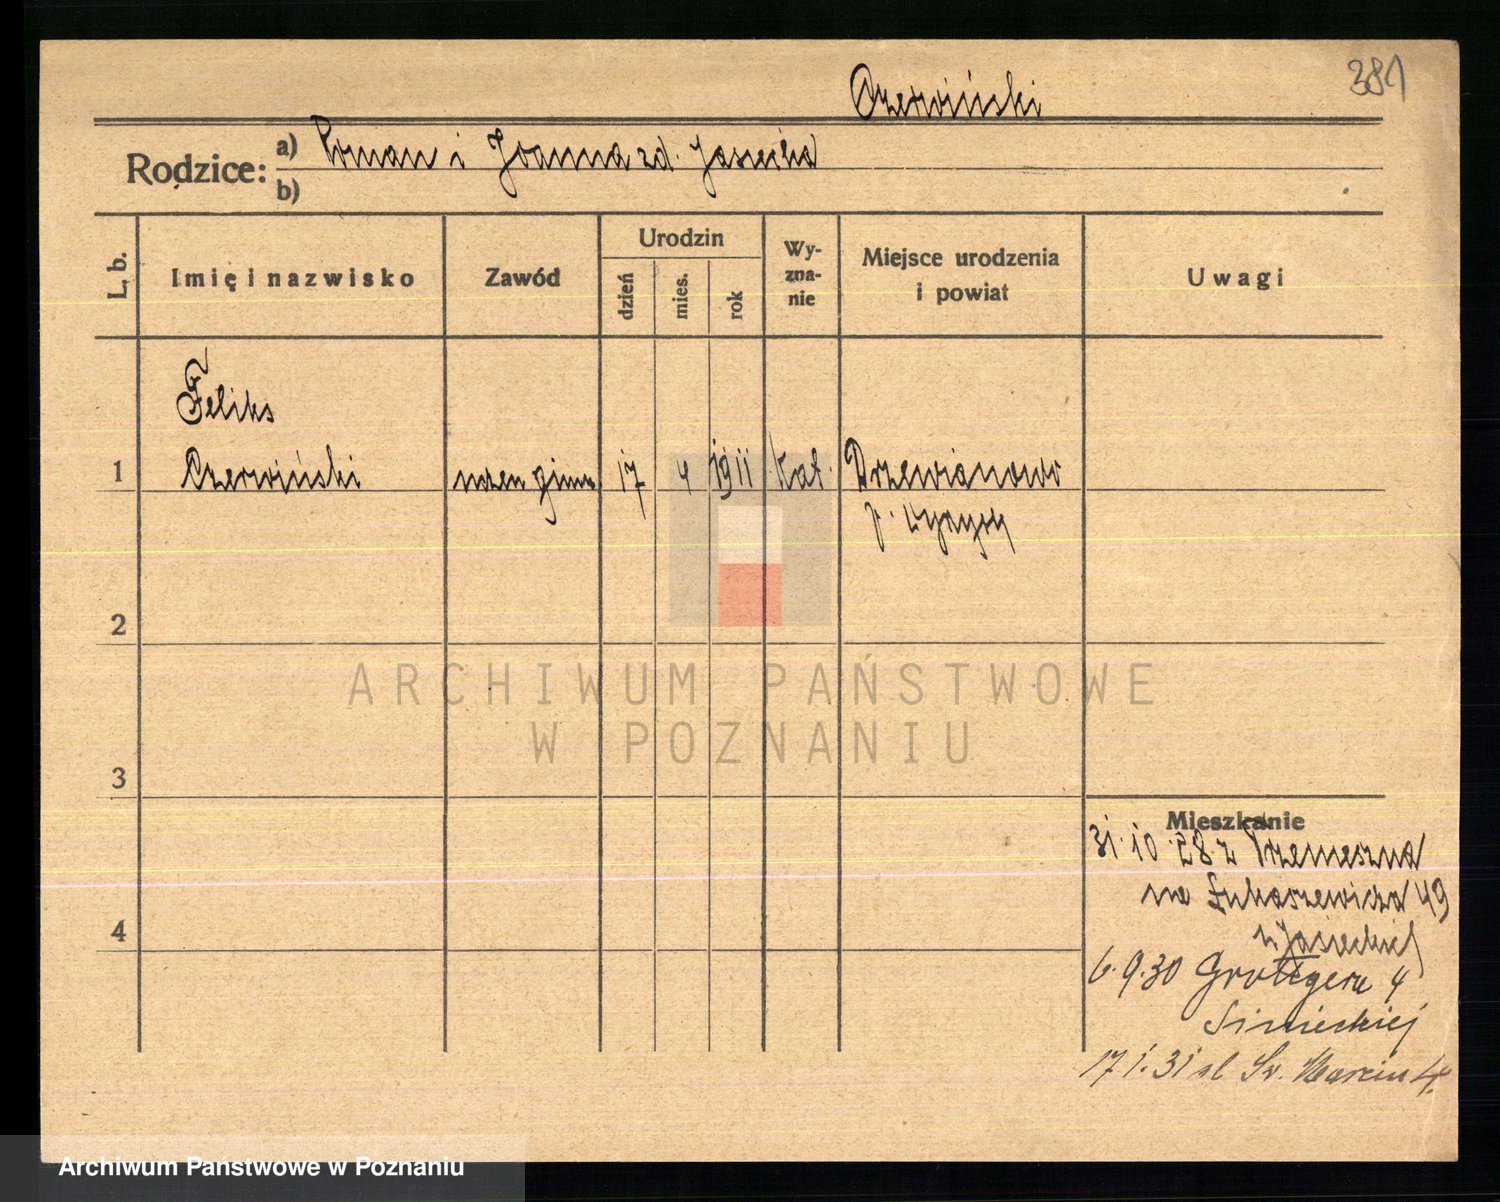 381
Czerwiński
Rodzice: a) Roman i Joanna zd. Jasiecka
b)
L. b.
Imię i nazwisko
Zawód
Urodzin
dzień
mies.
rok
Wy-
zna-
nie
Miejsce urodzenia
i powiat
Uwagi
Feliks
1 Czerwiński uczeń gimn. 17 4 1911 kat. Drzewianowo
p. Wyrzysk
2
3
4
Mieszkanie
31.10.28 z Trzemeszna
na Łukaszewicza 49
u Jasieckiej
6.9.30 Grottgera 4
17 1.31 ul Św. Marcin
ARCHIWUM PAŃSTWOWE
W POZNANIU
Archiwum Państwowe w Poznaniu